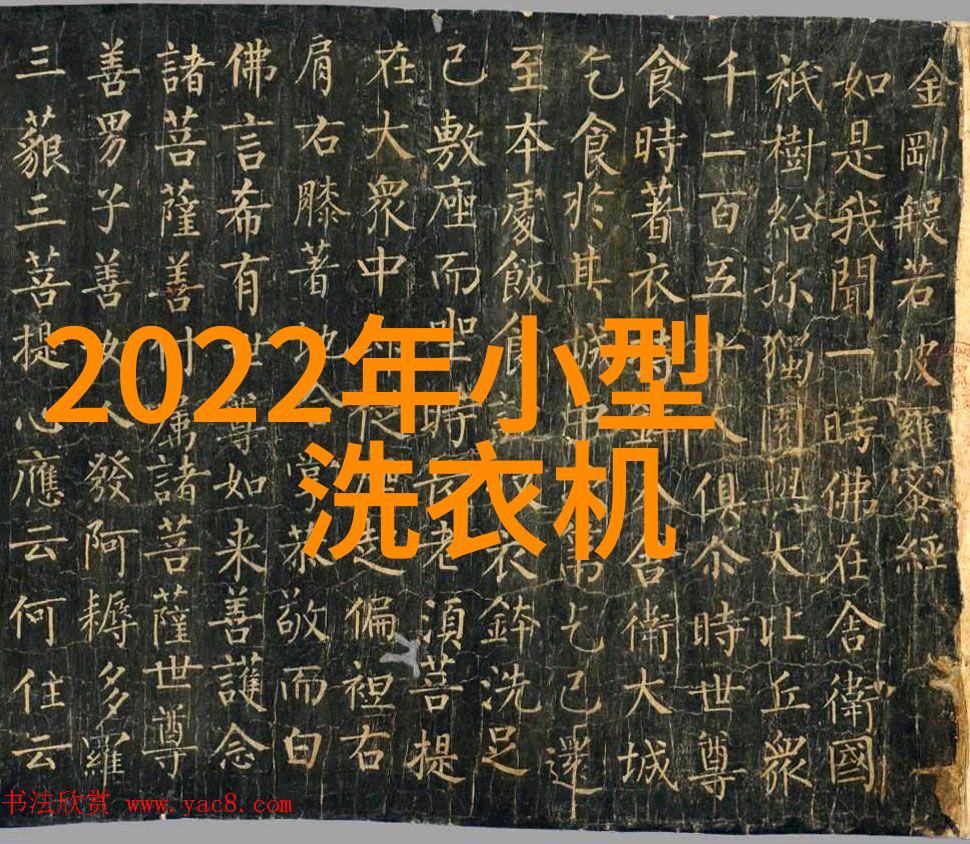 金剛般若波羅蜜經
如是我聞一時佛在舍衛國
祇樹給孤獨園與大比丘衆
千二百五十人俱尒時世尊
食時著衣舍衛大城
乞食於其城中乞已還
至本處飯食衣鉢洗足
已敷座而坐時長老須菩提
在大衆中偏袒右
肩右膝著地合掌恭敬而白
佛言希有世尊如来善護念
諸菩薩善付属諸菩薩世尊
善男子善女人發阿耨多羅
三藐三菩提心應云何住云
2022年小型
洗衣机
书法欣赏 www.yac8.com